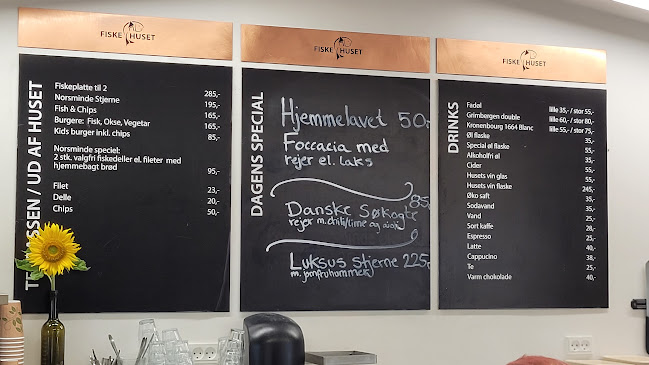 FISKE HUSET
T SSEN / UD AF HUSET
Fiskeplatte til 2 285,-
Norsminde Stjerne 195,-
Fish & Chips 165,-
Burgere: Fisk, Okse, Vegetar 165,-
Kids burger inkl. chips 85,-
Norsminde speciel:
2 stk. valgfri fiskedeller el. fileter med
hjemmebagt brød 95,-
Filet 23,-
Delle 20,-
Chips 50,-
FISKE HUSET
DAGENS SPECIAL
Hjemmelavet 50,-
Foccacia med
rejer el. laks
Danske Søkogte 85,-
rejer m. /lime og aioli
Luksus Stjerne 225,-
m. jomfruhummer
FISKE HUSET
DRINKS
Fadøl lille 35,- / stor 55,-
Grimbergen double lille 60,- / stor 80,-
Kronenbourg 1664 Blanc lille 55,- / stor 75,-
Øl flaske 35,-
Special øl flaske 55,-
Alkoholfri øl 35,-
Cider 55,-
Husets vin glas 55,-
Husets vin flaske 245,-
Øko saft 35,-
Sodavand 35,-
Vand 25,-
Sort kaffe 28,-
Espresso 25,-
Latte 40,-
Cappucino 38,-
Te 25,-
Varm chokolade 40,-